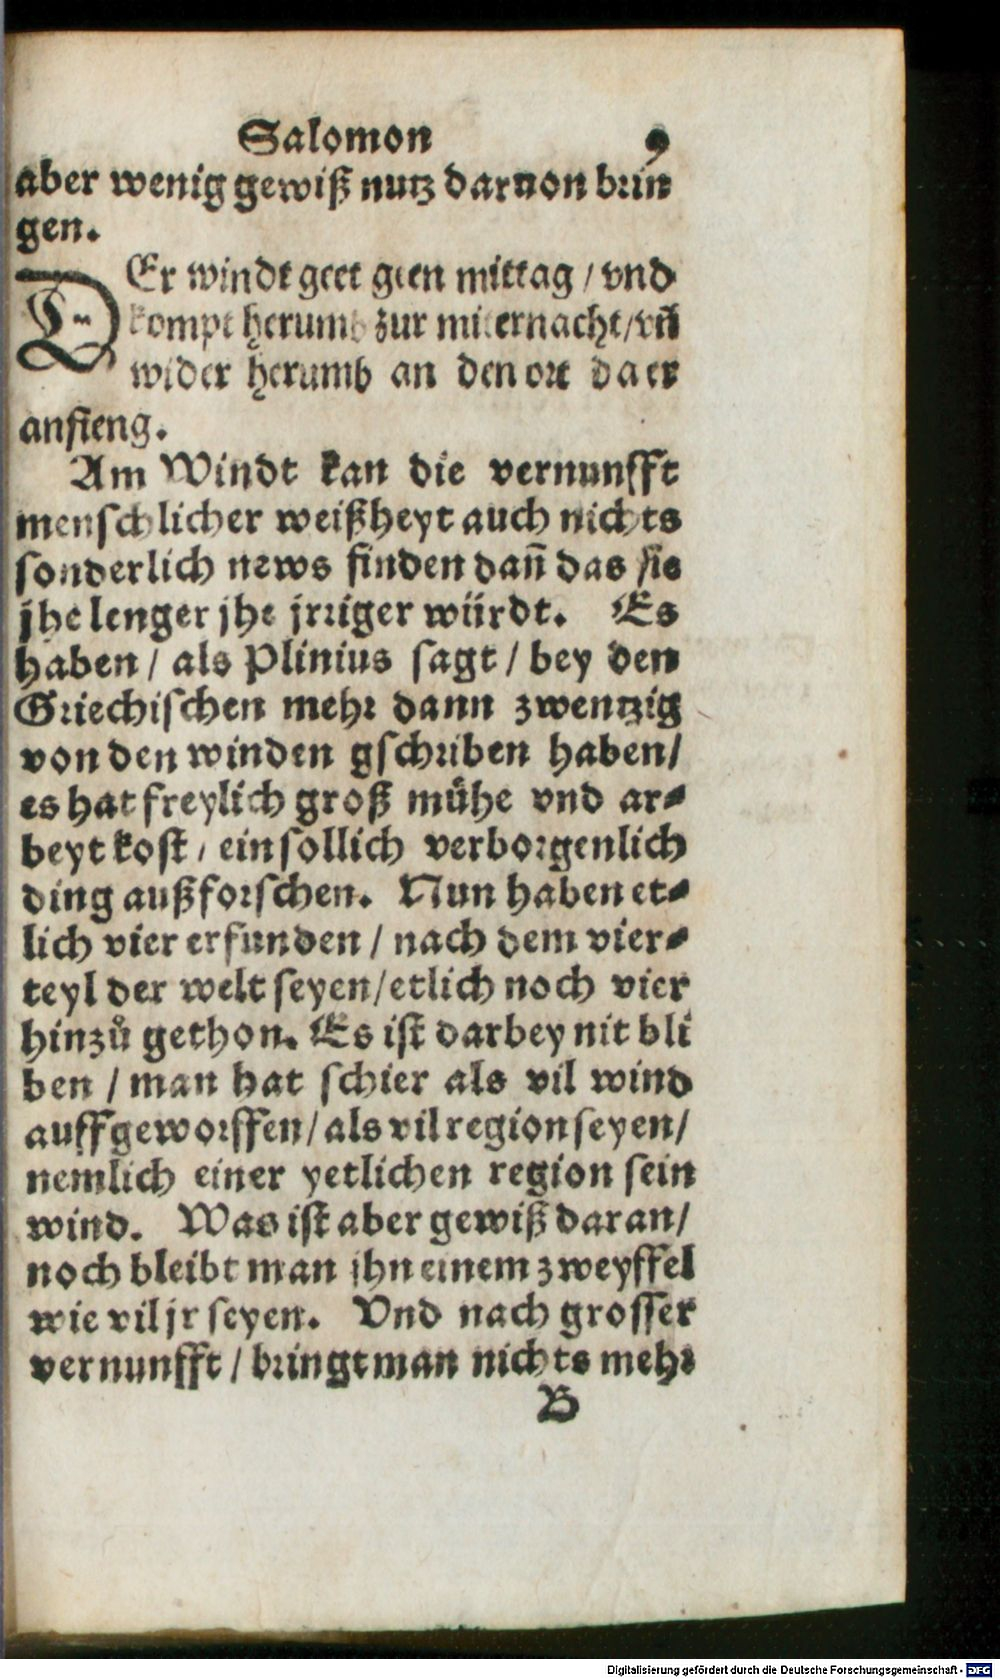 Salomon 9
aber wenig gewiß nutz daruon brin
gen.
DEr windt geet geen mittag / vnd
kompt herumb zur miternacht / vñ
wider herumb an den ort da er
anfieng.
Am Windt kan die vernunfft
menschlicher weißheyt auch nichts
sonderlich news finden dañ das sie
jhe lenger jhe jrriger würdt. Es
haben / als Plinius sagt / bey den
Griechischen mehr dann zwentzig
von den winden gschriben haben /
es hat freylich groß mühe vnd ar-
beyt kost / ein sollich verborgenlich
ding außforschen. Nun haben et-
lich vier erfunden / nach dem vier-
teyl der welt seyen / etlich noch vier
hinzů gethon. Es ist darbey nit bli
ben / man hat schier als vil wind
auffgeworffen / als vil region seyen /
nemlich einer yetlichen region sein
wind. Was ist aber gewiß daran /
noch bleibt man jhn einem zweyffel
wie vil jr seyen. Vnd nach grosser
vernunfft / bringt man nichts mehr
B
Digitalisierung gefördert durch die Deutsche Forschungsgemeinschaft - DFG